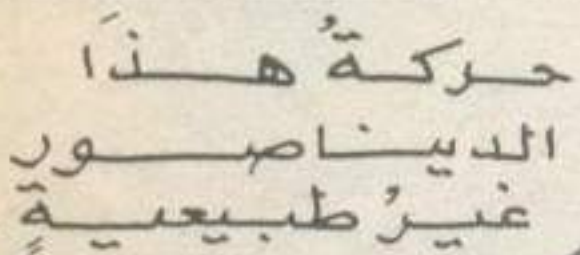 حركةُ هذَا
الديناصور
غيرُ طبيعيةٍ